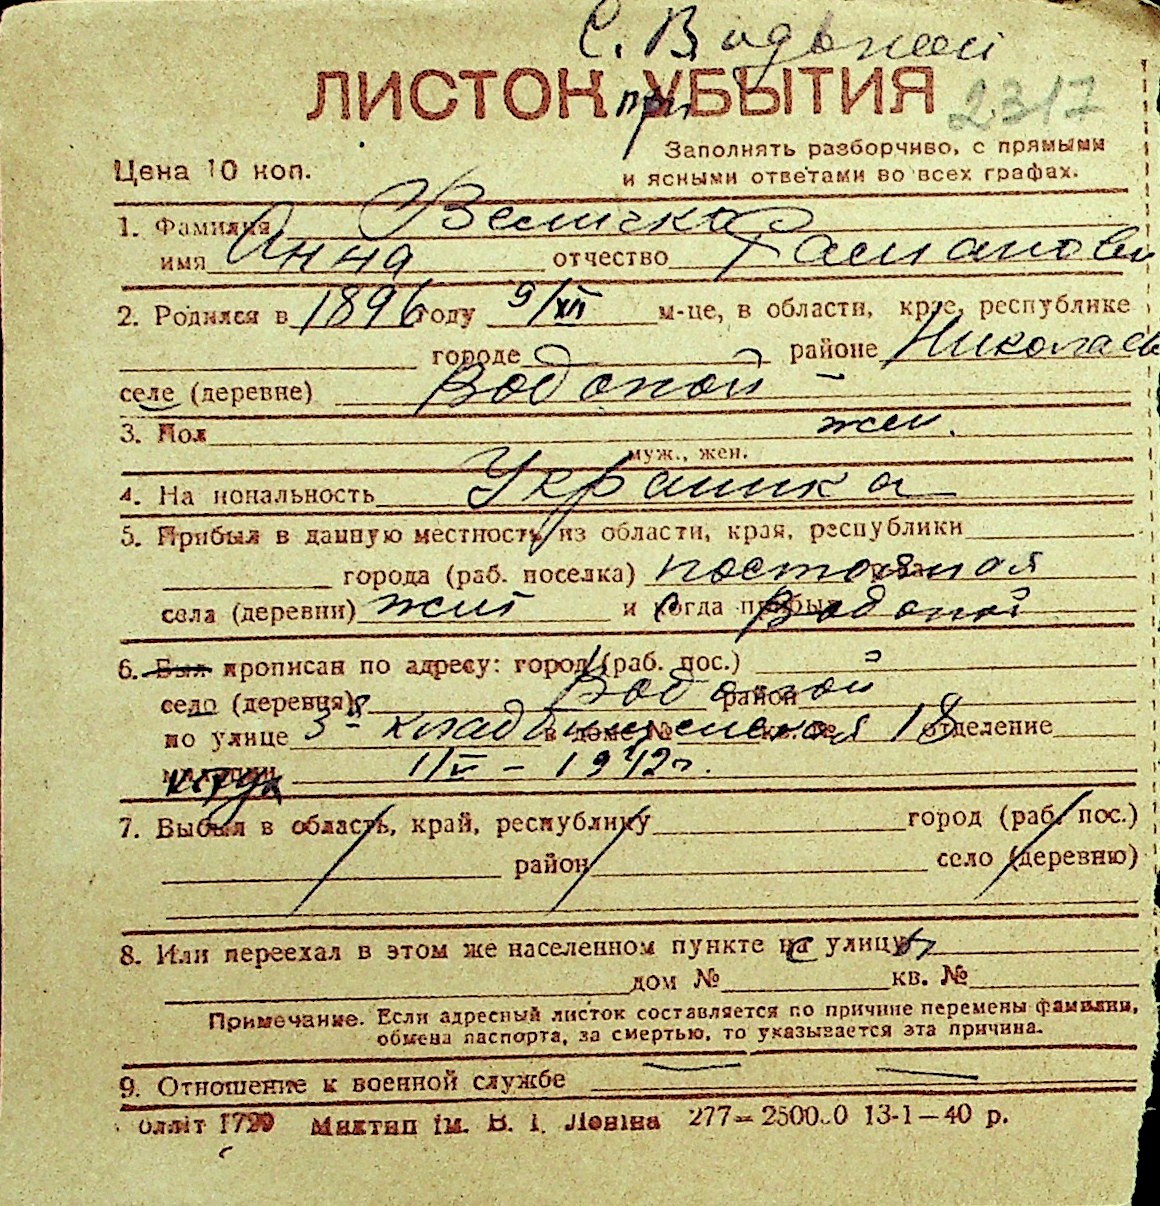 С. Водопой
ЛИСТОК УБЫТИЯ 2317
при
Заполнять разборчиво, с прямыми
Цена 10 коп. и ясными ответами во всех графах.
1. Фамилия Величко
имя Анна отчество
2. Родился в 1896 году 9/XII м-це, в области, крае, республике
городе районе Николаев
селе (деревне) Водопой
3. Пол жен.
муж., жен.
4. На иональность Украинка
5. Прибыл в данную местность из области, края, республики
города (раб. поселка) постояная
села (деревни) жит и когда прибыл Водопой
6. Был прописан по адресу: город (раб. пос.)
село (деревня) Водопой район
по улице 3-кладбищенская в доме № кв. № 18 отделение
милиции 1/V-1942г.
7. Выбыл в область, край, республику город (раб. пос.)
район село (деревню)
8. Или переехал в этом же населенном пункте на улицу
дом № кв. №
Примечание. Если адресный листок составляется по причине перемены фамилии,
обмена паспорта, за смертью, то указывается эта причина.
9. Отношение к военной службе
оллит 1799 Миктип ім. В. І. Леніна 277—2500.0 13-1—40 р.